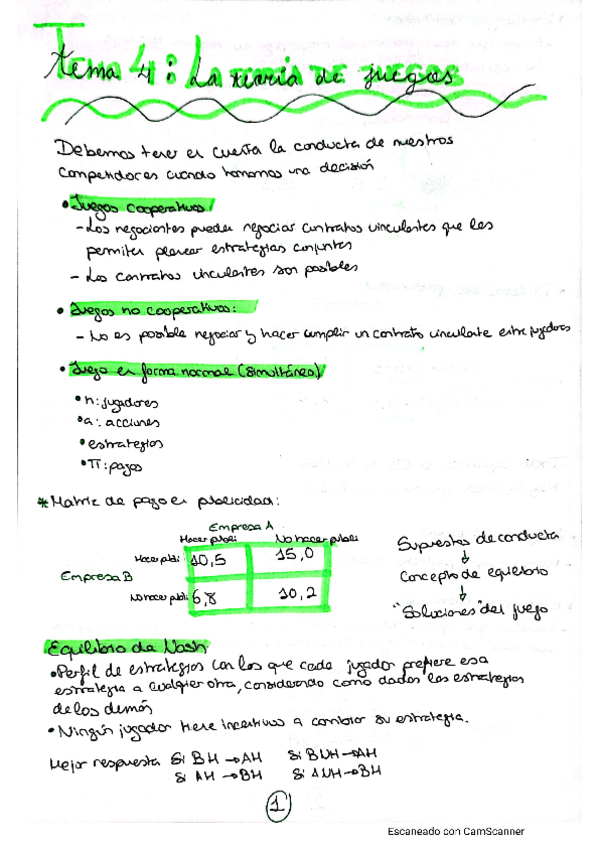 Tema 4: La teoría de juegos
Debemos tener en cuenta la conducta de nuestros
competidores cuando tomamos una decisión
• Juegos cooperativos:
- Los negociantes pueden negociar contratos vinculantes que les
permiten planear estrategias conjuntas
- Los contratos vinculantes son posibles
• Juegos no cooperativos:
- No es posible negociar y hacer cumplir un contrato vinculante entre jugadores
• Juego en forma normal (simultáneo)
• n: jugadores
• a: acciones
• estrategias
• Π: pagos
* Matriz de pago en publicidad:
Empresa A
Hacer publi No hacer publi
Hacer publi 10,5 15,0
Empresa B
No hacer publi 6,8 10,2
Supuestos de conducta
↓
Concepto de equilibrio
↓
"Soluciones" del juego
Equilibrio de Nash
• Perfil de estrategias con los que cada jugador prefiere esa
estrategia a cualquier otra, considerando como dados las estrategias
de los demás
• Ningún jugador tiene incentivos a cambiar su estrategia.
Mejor respuesta Si BH → AH Si BNH → AH
Si AH → BH Si ANH → BH
1
Escaneado con CamScanner